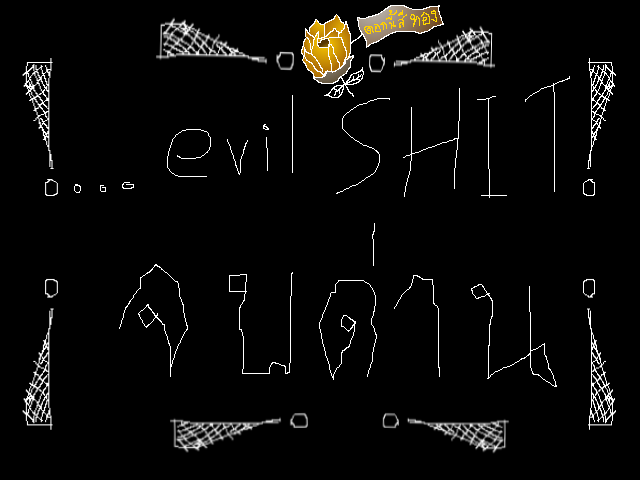 ดอกนี้สี ทอง
... evil SHIT
จบด่าน